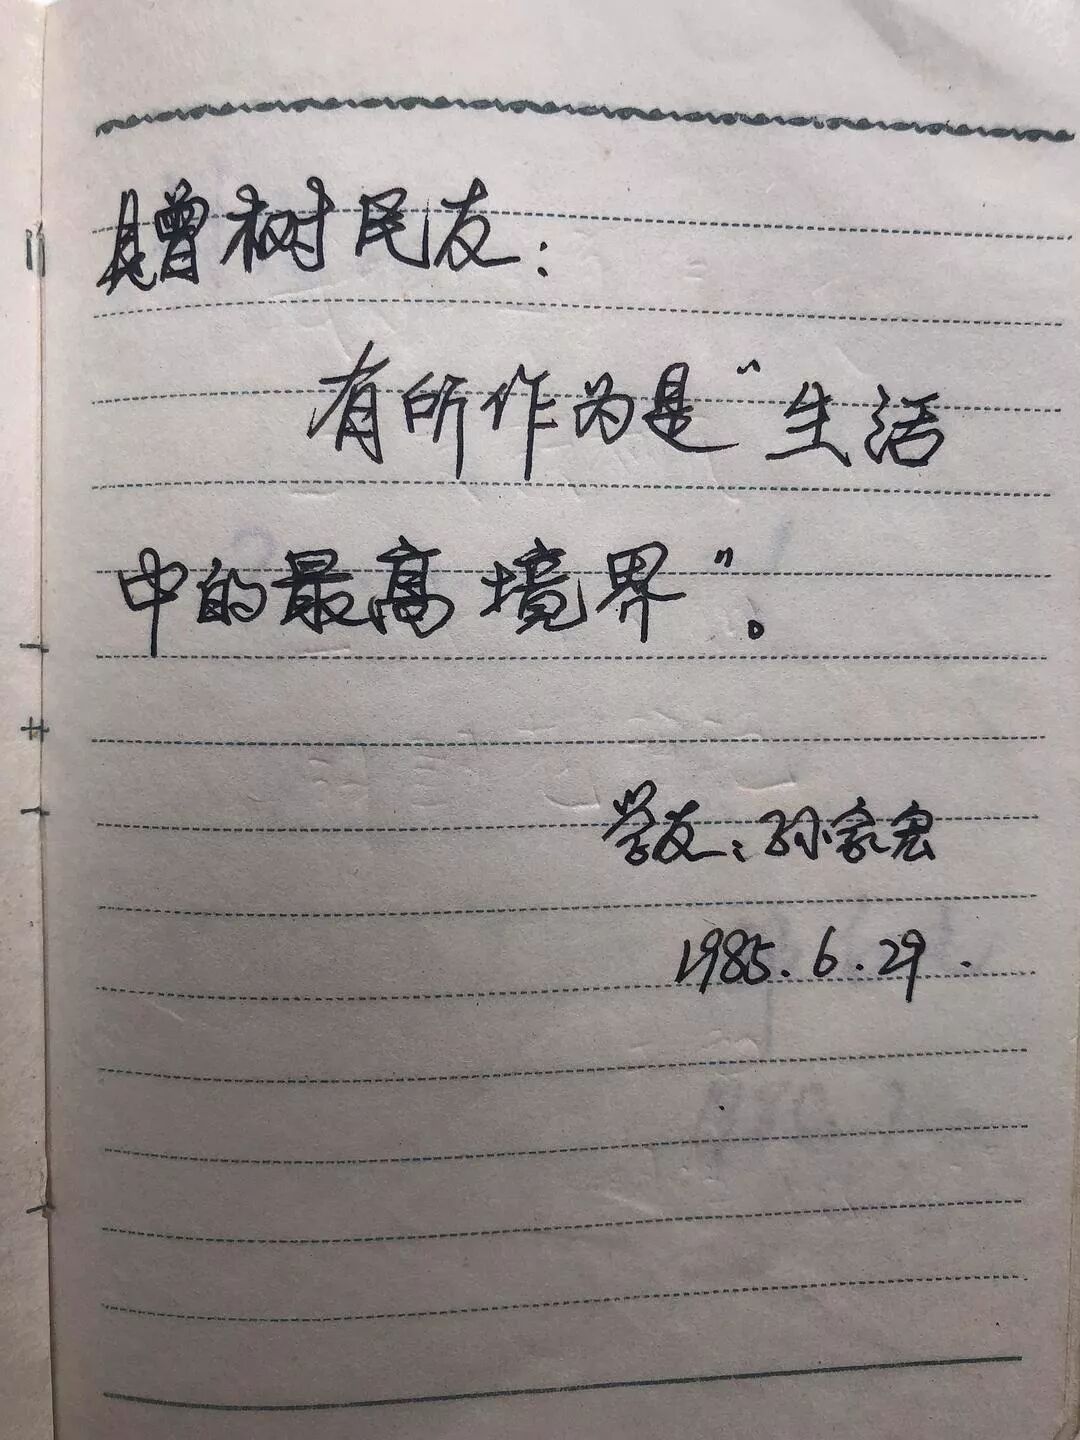 赠树民友：
有所作为是“生活
中的最高境界”。
学友：孙家宏
1985.6.29.